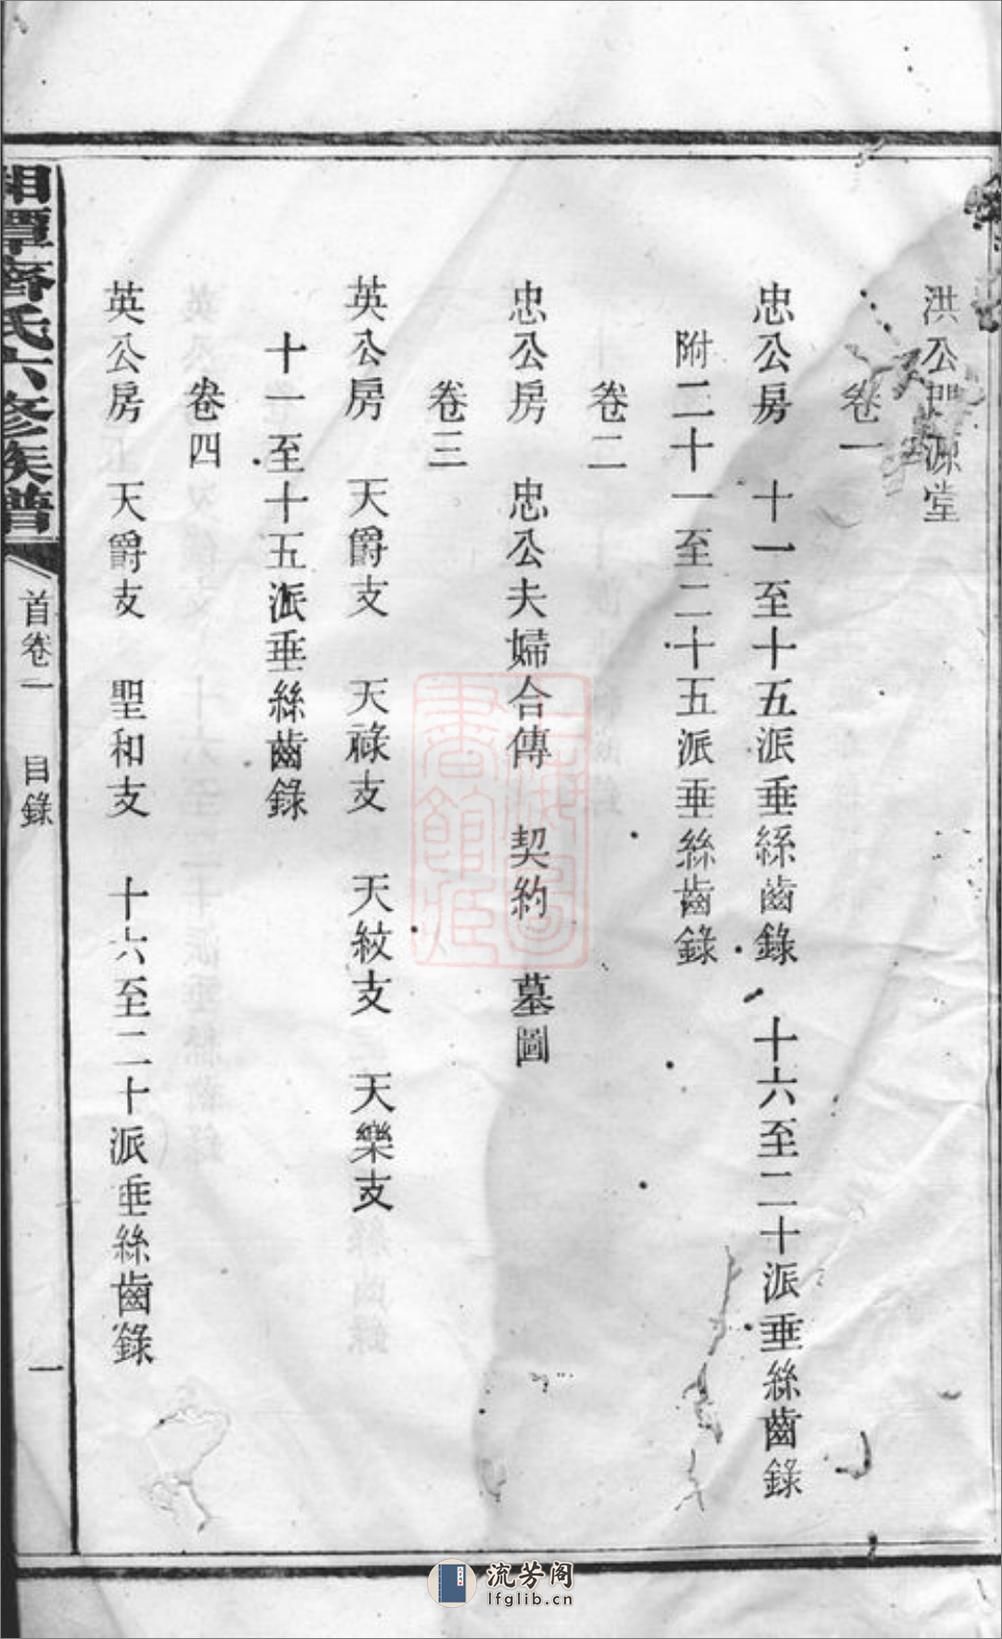 洪公門源堂
卷一
忠公房 十一至十五派垂絲齒錄 十六至二十派垂絲齒錄
附二十一至二十五派垂絲齒錄
卷二
忠公房 忠公夫婦合傳 契約 墓圖
卷三
英公房 天爵支 天祿支 天紋支 天樂支
十一至十五派垂絲齒錄
卷四
英公房 天爵支 聖和支 十六至二十派垂絲齒錄
湘潭齊氏六修族譜
首卷一 目錄
一
上海圖書館藏
流芳阁
lfglib.cn